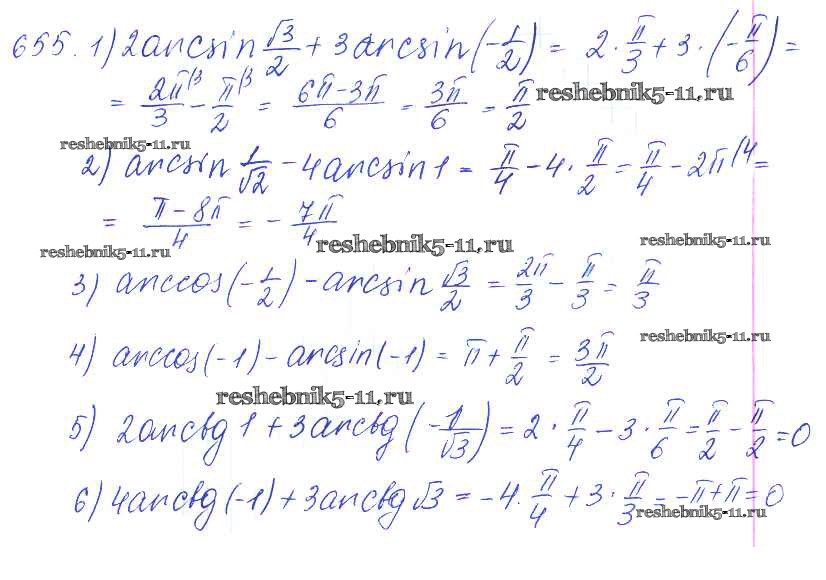 655. 1) 2arcsin √3/2 + 3arcsin(-1/2) = 2·π/3 + 3·(-π/6) =
= 2π/3 - π/2 = (6π-3π)/6 = 3π/6 = π/2 reshebnik5-11.ru
reshebnik5-11.ru
2) arcsin 1/√2 - 4arcsin1 = π/4 - 4·π/2 = π/4 - 2π =
= (π-8π)/4 = -7π/4
reshebnik5-11.ru reshebnik5-11.ru reshebnik5-11.ru
3) arccos(-1/2) - arcsin √3/2 = 2π/3 - π/3 = π/3
reshebnik5-11.ru
4) arccos(-1) - arcsin(-1) = π + π/2 = 3π/2
reshebnik5-11.ru
5) 2arctg1 + 3arctg(-1/√3) = 2·π/4 - 3·π/6 = π/2 - π/2 = 0
6) 4arctg(-1) + 3arctg√3 = -4·π/4 + 3·π/3 = -π+π = 0
reshebnik5-11.ru